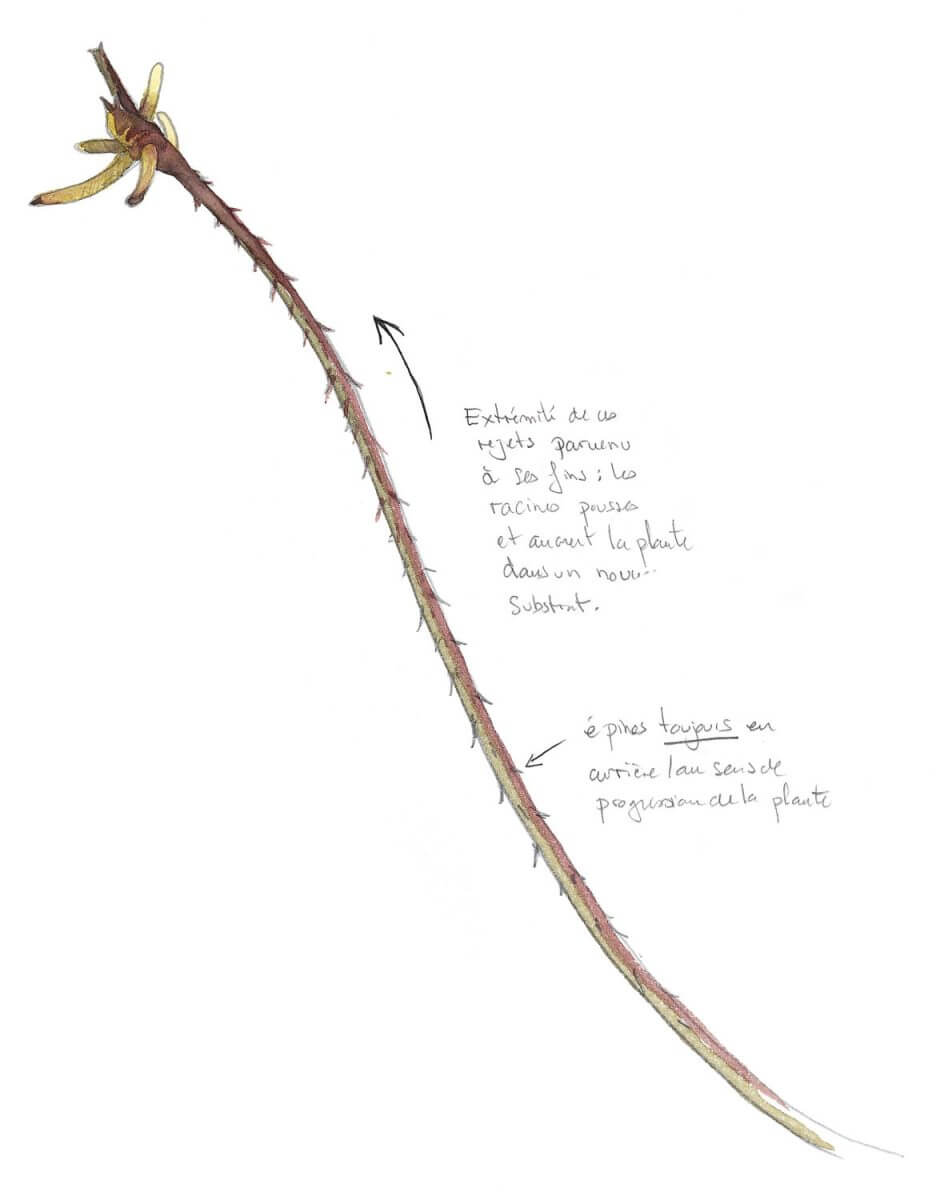 Extrémité de ces
rejets parvenu
à ses fins : les
racines pousses
et ancrent la plante
dans un nouv...
substrat.
épines toujours en
arrière / au sens de
progression de la plante